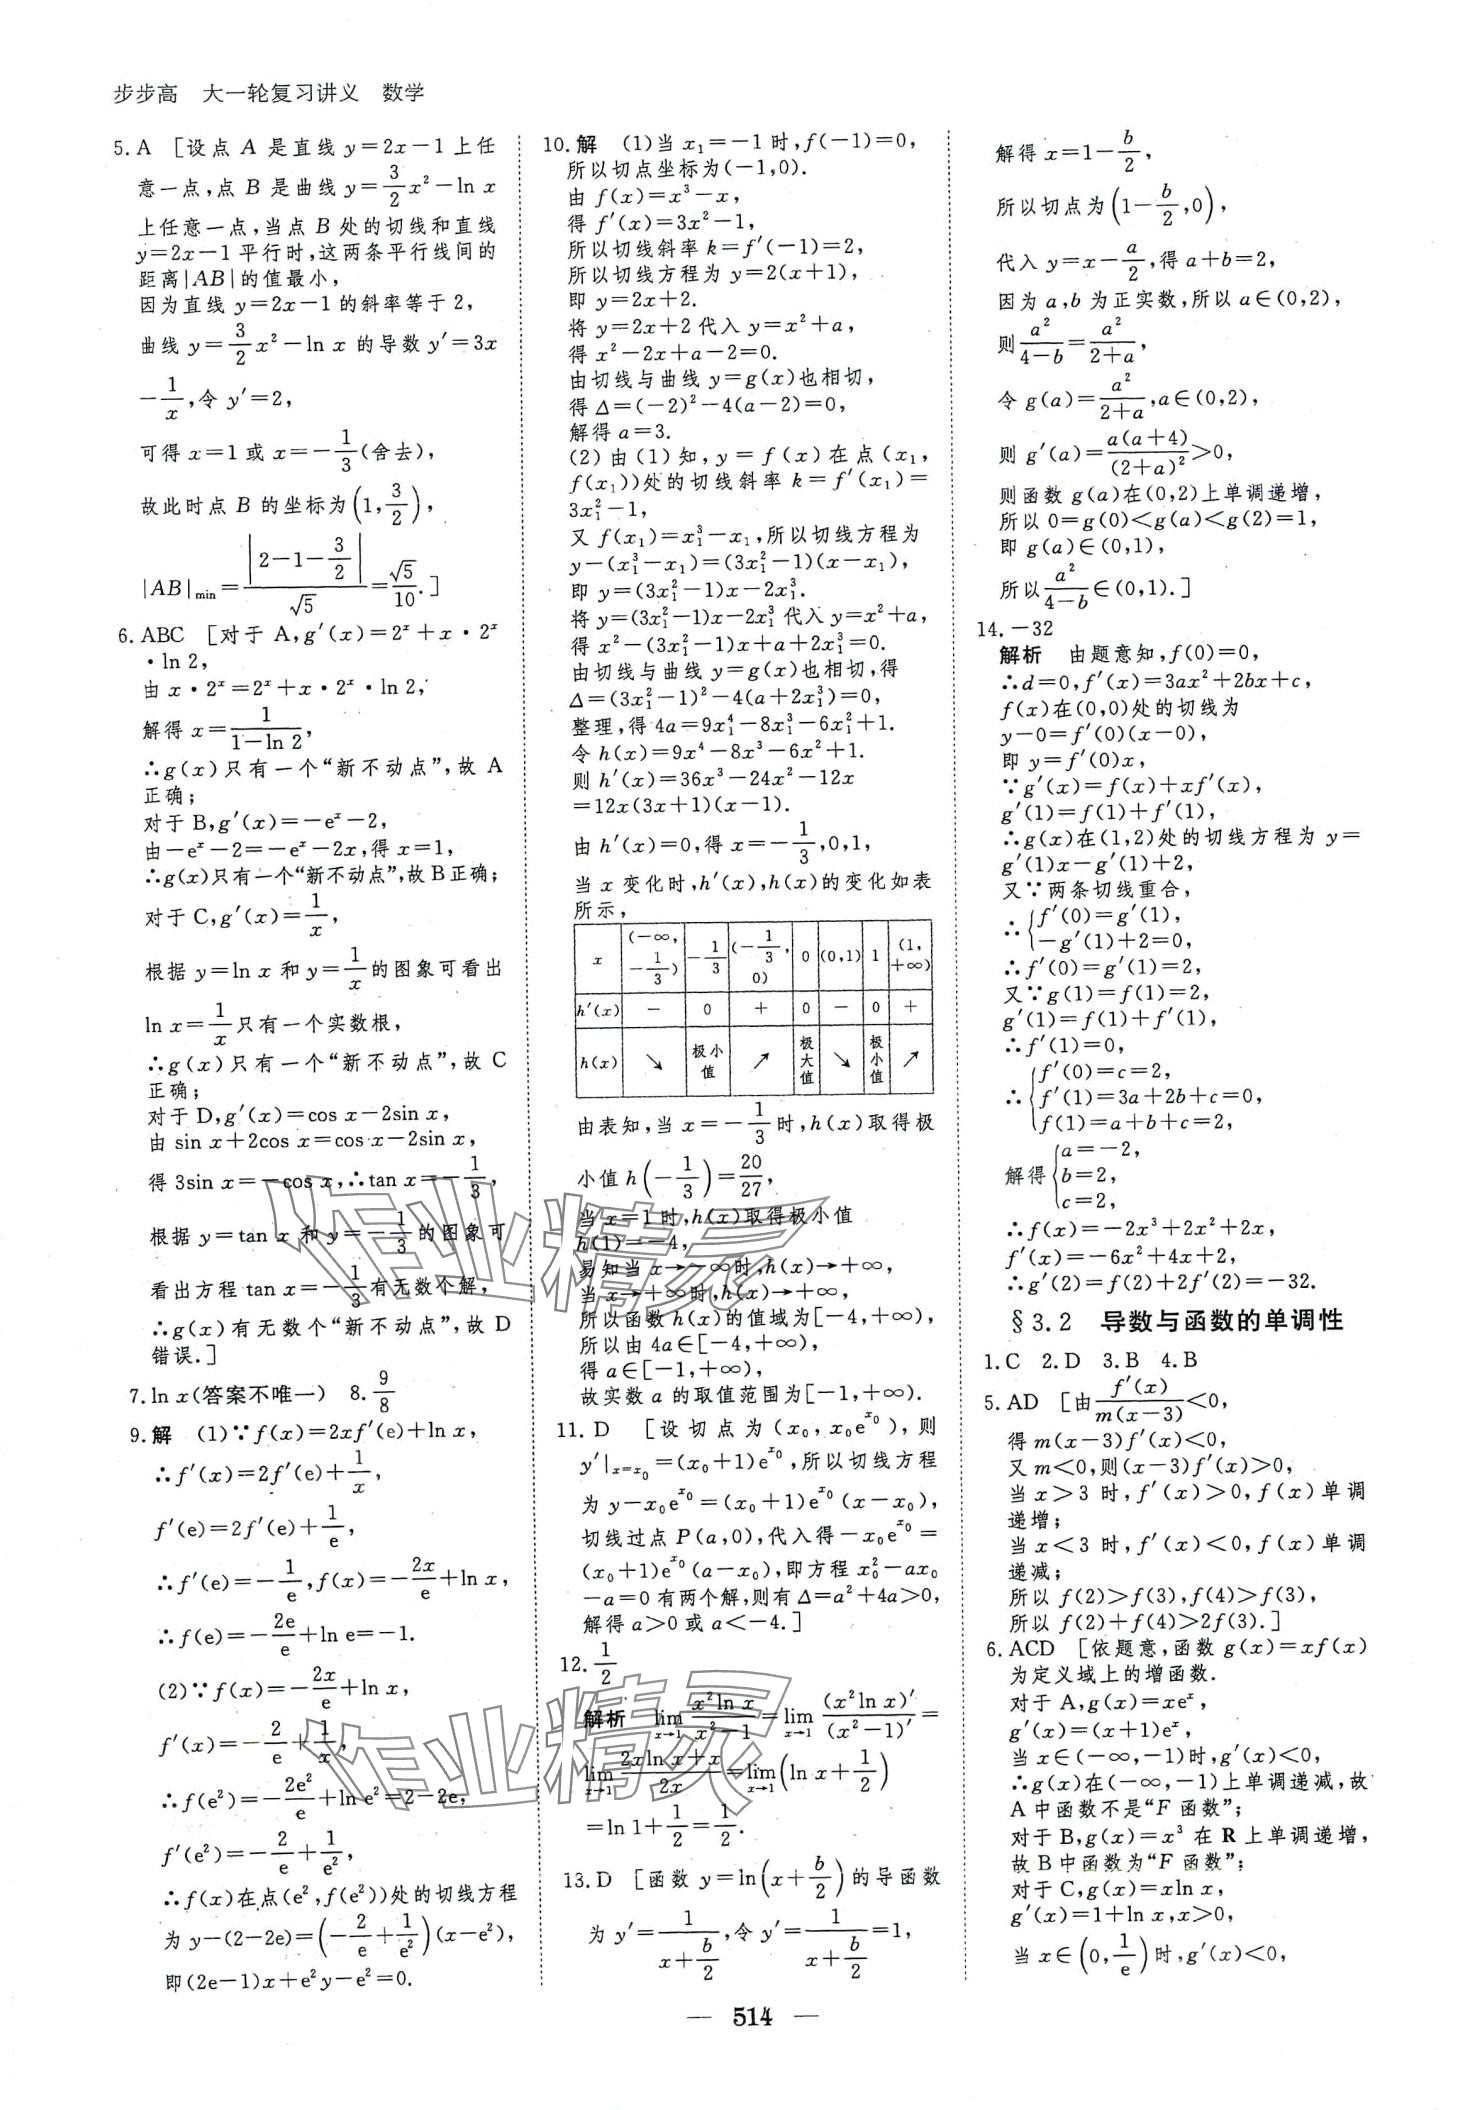 步步高 大一轮复习讲义 数学
5.A [设点 A 是直线 y=2x-1 上任
意一点,点 B 是曲线 y=3/2x²-ln x
上任意一点,当点 B 处的切线和直线
y=2x-1 平行时,这两条平行线间的
距离|AB|的值最小,
因为直线 y=2x-1 的斜率等于 2,
曲线 y=3/2x²-ln x 的导数 y′=3x
-1/x,令 y′=2,
可得 x=1 或 x=-1/3(舍去),
故此时点 B 的坐标为(1,3/2),
|AB|min=|2-1-3/2|/√5=√5/10.]
6.ABC [对于 A,g′(x)=2ˣ+x·2ˣ
·ln 2,
由 x·2ˣ=2ˣ+x·2ˣ·ln 2,
解得 x=1/(1-ln 2),
∴g(x)只有一个“新不动点”,故 A
正确;
对于 B,g′(x)=-eˣ-2,
由-eˣ-2=-eˣ-2x,得 x=1,
∴g(x)只有一个“新不动点”,故 B 正确;
对于 C,g′(x)=1/x,
根据 y=ln x 和 y=1/x 的图象可看出
ln x=1/x 只有一个实数根,
∴g(x)只有一个“新不动点”,故 C
正确;
对于 D,g′(x)=cos x-2sin x,
由 sin x+2cos x=cos x-2sin x,
得 3sin x=-cos x,∴tan x=-1/3,
根据 y=tan x 和 y=-1/3 的图象可
看出方程 tan x=-1/3 有无数个解,
∴g(x)有无数个“新不动点”,故 D
错误.]
7.ln x(答案不唯一) 8.9/8
9.解 (1)∵f(x)=2xf′(e)+ln x,
∴f′(x)=2f′(e)+1/x,
f′(e)=2f′(e)+1/e,
∴f′(e)=-1/e,f(x)=-2x/e+ln x,
∴f(e)=-2e/e+ln e=-1.
(2)∵f(x)=-2x/e+ln x,
f′(x)=-2/e+1/x,
∴f(e²)=-2e²/e+ln e²=2-2e,
f′(e²)=-2/e+1/e²,
∴f(x)在点(e²,f(e²))处的切线方程
为 y-(2-2e)=(-2/e+1/e²)(x-e²),
即(2e-1)x+e²y-e²=0.
10.解 (1)当 x₁=-1 时,f(-1)=0,
所以切点坐标为(-1,0).
由 f(x)=x³-x,
得 f′(x)=3x²-1,
所以切线斜率 k=f′(-1)=2,
所以切线方程为 y=2(x+1),
即 y=2x+2.
将 y=2x+2 代入 y=x²+a,
得 x²-2x+a-2=0.
由切线与曲线 y=g(x)也相切,
得 Δ=(-2)²-4(a-2)=0,
解得 a=3.
(2)由(1)知,y=f(x)在点(x₁,
f(x₁))处的切线斜率 k=f′(x₁)=
3x₁²-1,
又 f(x₁)=x₁³-x₁,所以切线方程为
y-(x₁³-x₁)=(3x₁²-1)(x-x₁),
即 y=(3x₁²-1)x-2x₁³.
将 y=(3x₁²-1)x-2x₁³ 代入 y=x²+a,
得 x²-(3x₁²-1)x+a+2x₁³=0.
由切线与曲线 y=g(x)也相切,得
Δ=(3x₁²-1)²-4(a+2x₁³)=0,
整理,得 4a=9x₁⁴-8x₁³-6x₁²+1.
令 h(x)=9x⁴-8x³-6x²+1.
则 h′(x)=36x³-24x²-12x
=12x(3x+1)(x-1).
由 h′(x)=0,得 x=-1/3,0,1,
当 x 变化时,h′(x),h(x)的变化如表
所示,
x (-∞,-1/3) -1/3 (-1/3,0) 0 (0,1) 1 (1,+∞)
h′(x) - 0 + 0 - 0 +
h(x) ↘ 极小值 ↗ 极大值 ↘ 极小值 ↗
由表知,当 x=-1/3 时,h(x)取得极
小值 h(-1/3)=20/27,
当 x=1 时,h(x)取得极小值
h(1)=-4,
易知当 x→-∞时,h(x)→+∞,
当 x→+∞时,h(x)→+∞,
所以函数 h(x)的值域为[-4,+∞),
所以由 4a∈[-4,+∞),
得 a∈[-1,+∞),
故实数 a 的取值范围为[-1,+∞).
11.D [设切点为(x₀,x₀e^x₀),则
y′|x=x₀=(x₀+1)e^x₀,所以切线方程
为 y-x₀e^x₀=(x₀+1)e^x₀(x-x₀),
切线过点 P(a,0),代入得-x₀e^x₀=
(x₀+1)e^x₀(a-x₀),即方程 x₀²-ax₀
-a=0 有两个解,则有 Δ=a²+4a>0,
解得 a>0 或 a<-4.]
12.1/2
解析 lim x→1 x²ln x/(x²-1)=lim x→1 (x²ln x)′/(x²-1)′=
lim x→1 (2xln x+x)/2x=lim x→1(ln x+1/2)
=ln 1+1/2=1/2.
13.D [函数 y=ln(x+b/2)的导函数
为 y′=1/(x+b/2),令 y′=1/(x+b/2)=1,
解得 x=1-b/2,
所以切点为(1-b/2,0),
代入 y=x-a/2,得 a+b=2,
因为 a,b 为正实数,所以 a∈(0,2),
则 a²/(4-b)=a²/(2+a),
令 g(a)=a²/(2+a),a∈(0,2),
则 g′(a)=a(a+4)/(2+a)²>0,
则函数 g(a)在(0,2)上单调递增,
所以 0=g(0)<g(a)<g(2)=1,
即 g(a)∈(0,1),
所以 a²/(4-b)∈(0,1).]
14.-32
解析 由题意知,f(0)=0,
∴d=0,f′(x)=3ax²+2bx+c,
f(x)在(0,0)处的切线为
y-0=f′(0)(x-0),
即 y=f′(0)x,
∵g′(x)=f(x)+xf′(x),
g′(1)=f(1)+f′(1),
∴g(x)在(1,2)处的切线方程为 y=
g′(1)x-g′(1)+2,
又∵两条切线重合,
∴{f′(0)=g′(1),
-g′(1)+2=0,
∴f′(0)=g′(1)=2,
又∵g(1)=f(1)=2,
g′(1)=f(1)+f′(1),
∴f′(1)=0,
∴{f′(0)=c=2,
f′(1)=3a+2b+c=0,
f(1)=a+b+c=2,
解得{a=-2,
b=2,
c=2,
∴f(x)=-2x³+2x²+2x,
f′(x)=-6x²+4x+2,
∴g′(2)=f(2)+2f′(2)=-32.
§3.2 导数与函数的单调性
1.C 2.D 3.B 4.B
5.AD [由f′(x)/m(x-3)<0,
得 m(x-3)f′(x)<0,
又 m<0,则(x-3)f′(x)>0,
当 x>3 时,f′(x)>0,f(x)单调
递增;
当 x<3 时,f′(x)<0,f(x)单调
递减;
所以 f(2)>f(3),f(4)>f(3),
所以 f(2)+f(4)>2f(3).]
6.ACD [依题意,函数 g(x)=xf(x)
为定义域上的增函数.
对于 A,g(x)=xeˣ,
g′(x)=(x+1)eˣ,
当 x∈(-∞,-1)时,g′(x)<0,
∴g(x)在(-∞,-1)上单调递减,故
A 中函数不是“F 函数”;
对于 B,g(x)=x³ 在 R 上单调递增,
故 B 中函数为“F 函数”;
对于 C,g(x)=xln x,
g′(x)=1+ln x,x>0,
当 x∈(0,1/e)时,g′(x)<0,
— 514 —
作业精灵
作业精灵